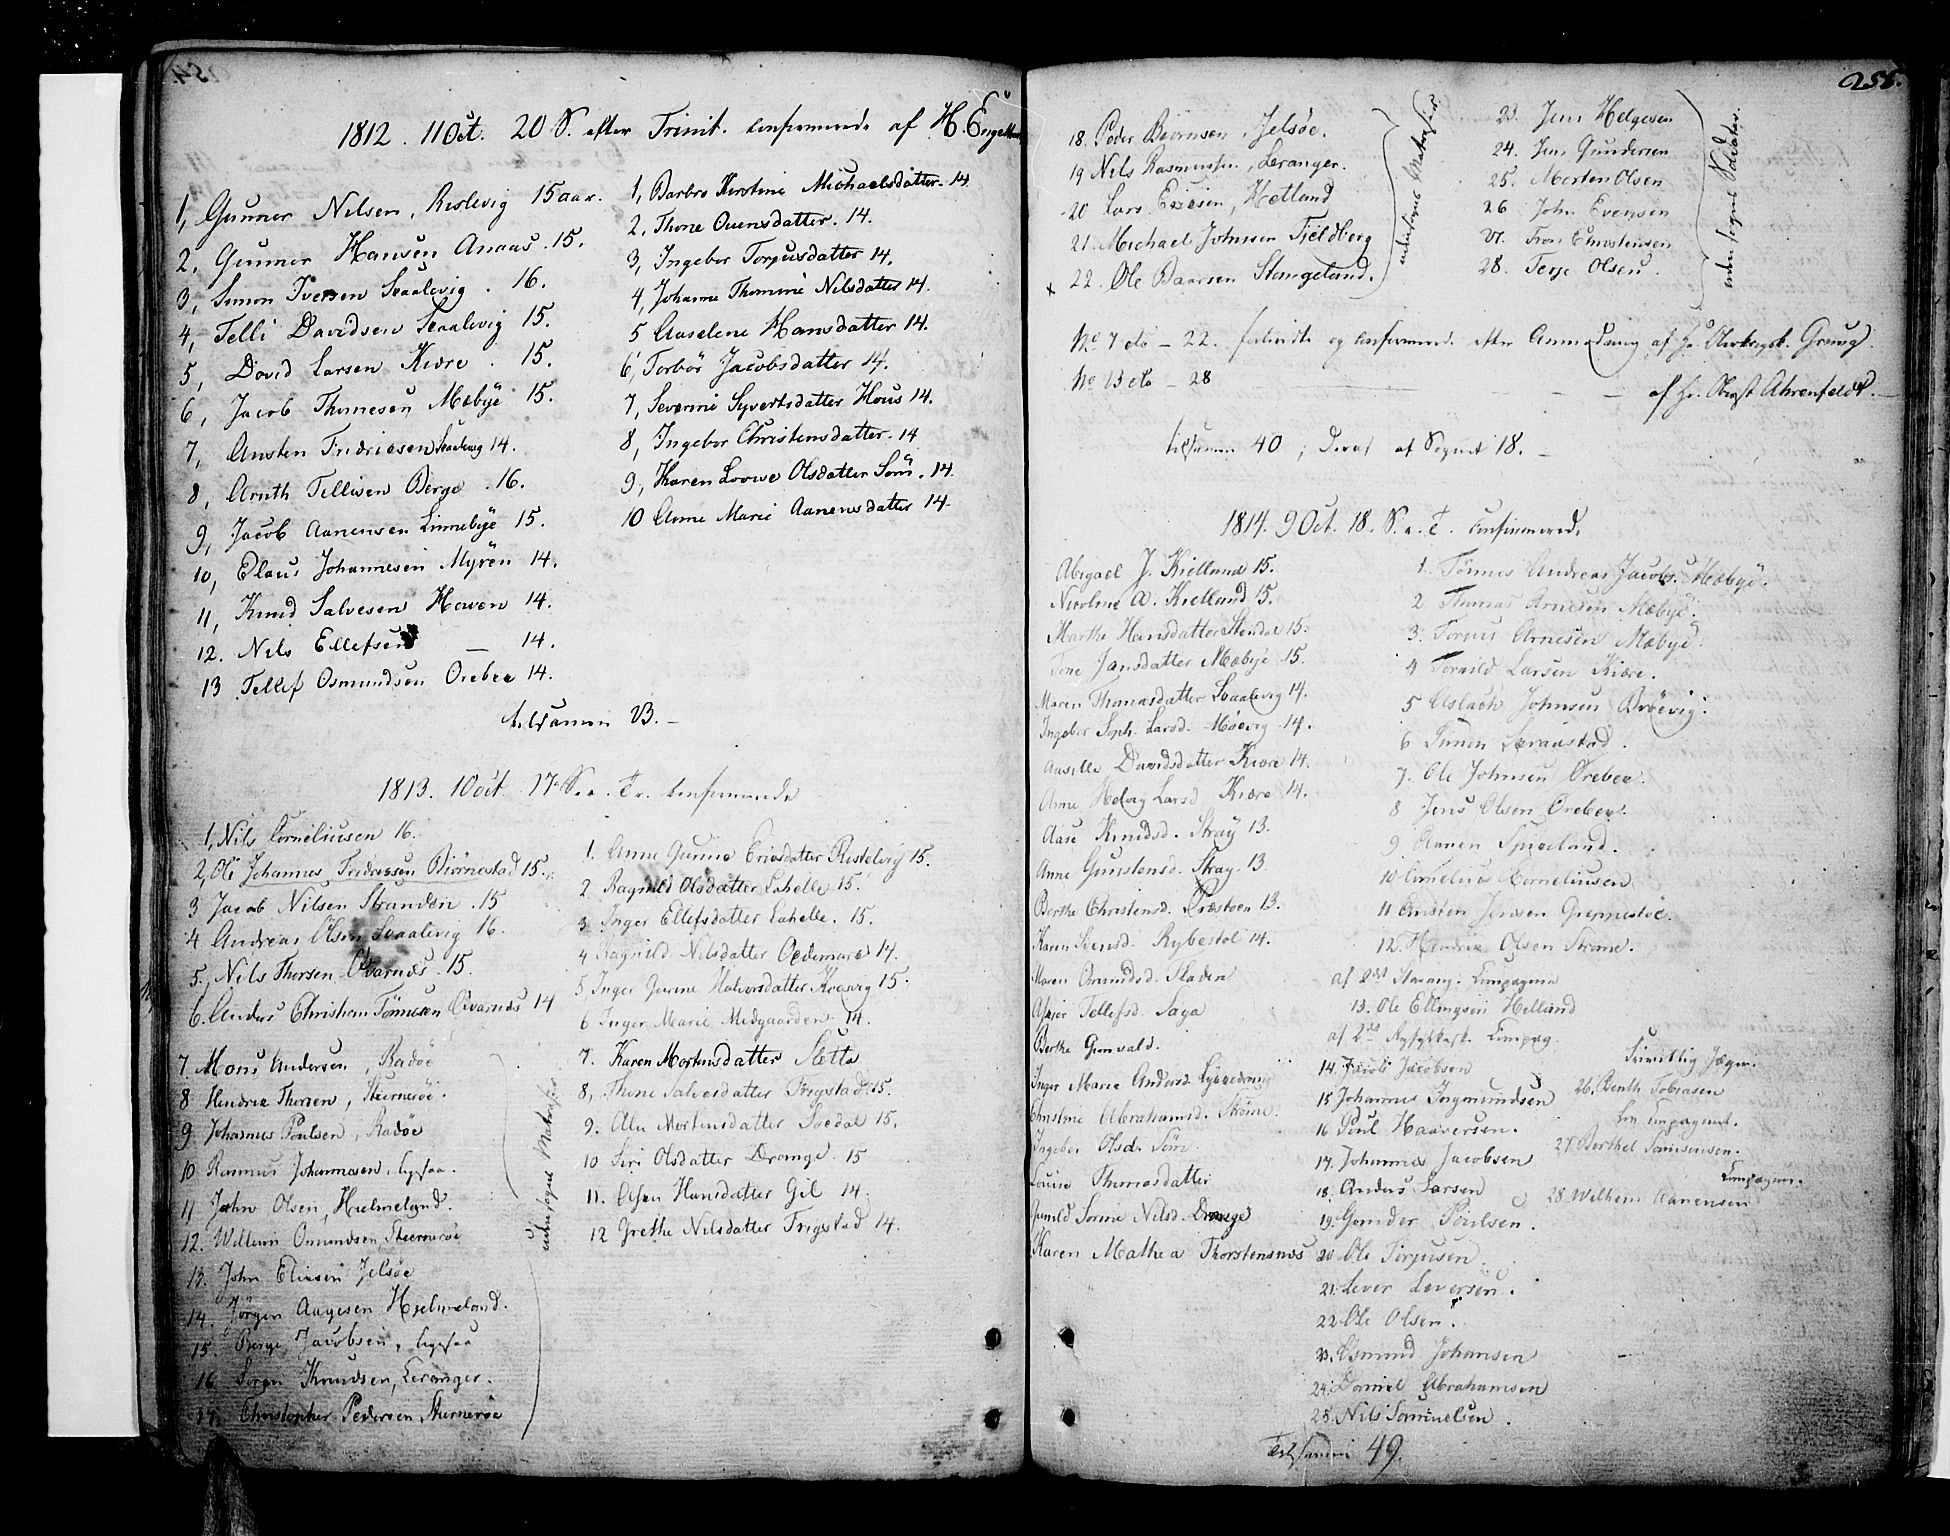 1812. 11 Oct. 20 S. efter Trinit. confirmerede af H. Engel
1, Gunner Nilsen, Rislevig 15 aar.
2, Gunner Hansen Anaas. 15.
3, Simon Iversen Skaalevig. 16.
4, Telli Davidsen Skaalevig 15.
5, David Larsen Kiære. 15.
6, Jacob Thomesen Mæbye 15.
7, Austen Fridricsen Skaalevig 14.
8, Arnth Tellisen Berge. 16.
9, Jacob Aanensen Linnebye 15.
10, Claus Johannesen Myren 14.
11, Knud Salvesen Howen 14.
12. Nils Ellefsen — 14.
13 Tellef Osmundsen Orebec 14.
1, Barbro Kirstine Michaelsdatter. 14
2, Thone Ouensdatter. 14.
3, Ingebor Torjusdatter 14.
4, Johanne Thomine Nilsdatter 14.
5 Aaselene Hansdatter 14.
6, Torbör Jacobsdatter 14.
7, Severine Syvertsdatter Hous 14.
8, Ingebor Christensdatter. 14
9, Karen Lovise Olsdatter Sørn. 14.
10 Anne Marie Aanensdatter 14.
tilsamen 23.
1813. 10 Oct. 17 S. e. Tr. confirmerede
1, Nils Corneliusen 16.
2, Ole Johannes Fredrecsen Biørnestad 15.
3 Jacob Nilsen Stranden. 15
4 Andreas Olsen Skaalevig 16.
5, Nils Thorsen Qvarnes. 15.
6. Anders Christian Tønnesen Qvarnes 14
7. Mons Andersen, Radøe
8 Hendric Thorsen, Stiernerøe.
9. Johannes Poulsen, Radøe
10 Rasmus Johannesen, ligesaa.
11 John Olsen, Hielmeland.
12. Willum Omundsen, Stiernerøe
13. John Eliesen Jelsøe
14. Jörgen Aagesen Hjelmeland.
15. Berge Jacobsen, ligesaa
16. Sören Knudsen, Leranger.
17. Christopher Pedersen, Stiernerøe
1. Anne Gurine Ericsdatter Rislevig 15.
2. Ragnild Olsdatter Lahelle 15.
3. Inger Ellefsdatter Lahelle. 15.
4 Ragnild Nilsdatter Oddemare 14.
5, Inger Gurine Halvorsdatter Kosvig 15.
6 Inger Marie Midgaarden. 14.
7. Karen Mortensdatter Sletta
8, Thone Salvesdatter Frigstad 15.
9. Ale Mortensdatter Soedal 15.
10 Siri Olsdatter Drange. 15
11. Assa Hansdatter Gil 14.
12 Grethe Nilsdatter Frigstad 14.
255.
18. Peder Biørnsen, Jelsøe.
19 Nils Rasmussen, Leranger.
20 Lars Ericsen, Hetland
21. Michael Johnsen Fjeldberg
x 22. Ole Baarsen Stangeland.
23. Jens Helgesen
24. Jens Gundersen
25. Morten Olsen
26 John Evensen
27. Tron Christensen
28. Terje Olsen.
No 7 til — 22. confirmerede efter Anmodning af Hr.
No 23 til — 28 — — af Hr. Oberst Ahrenfeldt.
tilsamen 40; deraf af Sognet 18.
1814. 9 Oct. 18. S. e. T. confirmerede
Abigael J. Kielland 15.
Nicoline A. Kielland 15.
Marthe Hansdatter Stendal 15.
Tone Jansdatter Mæbye 15.
Maren Thomasdatter Skaalevig 14.
Ingebor Soph. Larsd. Møevig. 14.
Aaselle Davidsdatter Kiære 14.
Anne Helvig Larsd Kiære 14.
Aase Knudsd. Stray 13.
Anne Gunstensd. Stray. 13
Berthe Christensd. Præstøen 13.
Karen Svensd. Rybestøl 14.
Maren Omundsd. Fladen
Tellefsd. Saga
Berthe Gunvald.
Inger Marie Andersd.
Christene Abrahamsd. Strøme.
Ingebor Olsd. Sørn
Louise Thomasdatter
Gunild Sørine Nilsd. Drange
Karen Mathea Thorstensnæs
1. Tønnes Andreas Jacobs. Mæbye.
2 Thomas Arnesen Mæbye.
3. Torjus Arnesen Mæbye.
4 Tornild Larsen Kiære.
5 Aslach Johnsen Brøevig.
6 Simen
7. Ole Johnsen Orebec.
8 Jens Olsen Orebec.
9 Aanen
10 Cornelius Corneliusen
11 Austen Jensen Grepnestøe.
12. Hendric Olsen Strøme.
af 2det Stavang. Compagnie
13. Ole Ellingsen Helland
af 2det Ryfylkesk. Compag.
14. Jacobsen
15 Johannes Ingmundsen
16 Poul Haaversen.
17. Johannes Jacobsen
18. Anders Larsen
19. Gunder Poulsen.
20 Ole Torjusen.
21. Sever Seversen.
22 Ole Olsen.
23. Osmund Johansen
24. Daniel Abrahamsen
25. Nils Samuelsen.
Frivillig Jæger.
26. Benth Tobiasen
27. Berthel
Compagnie.
28. Wilhelm Aanensen
Tilsamen 49.